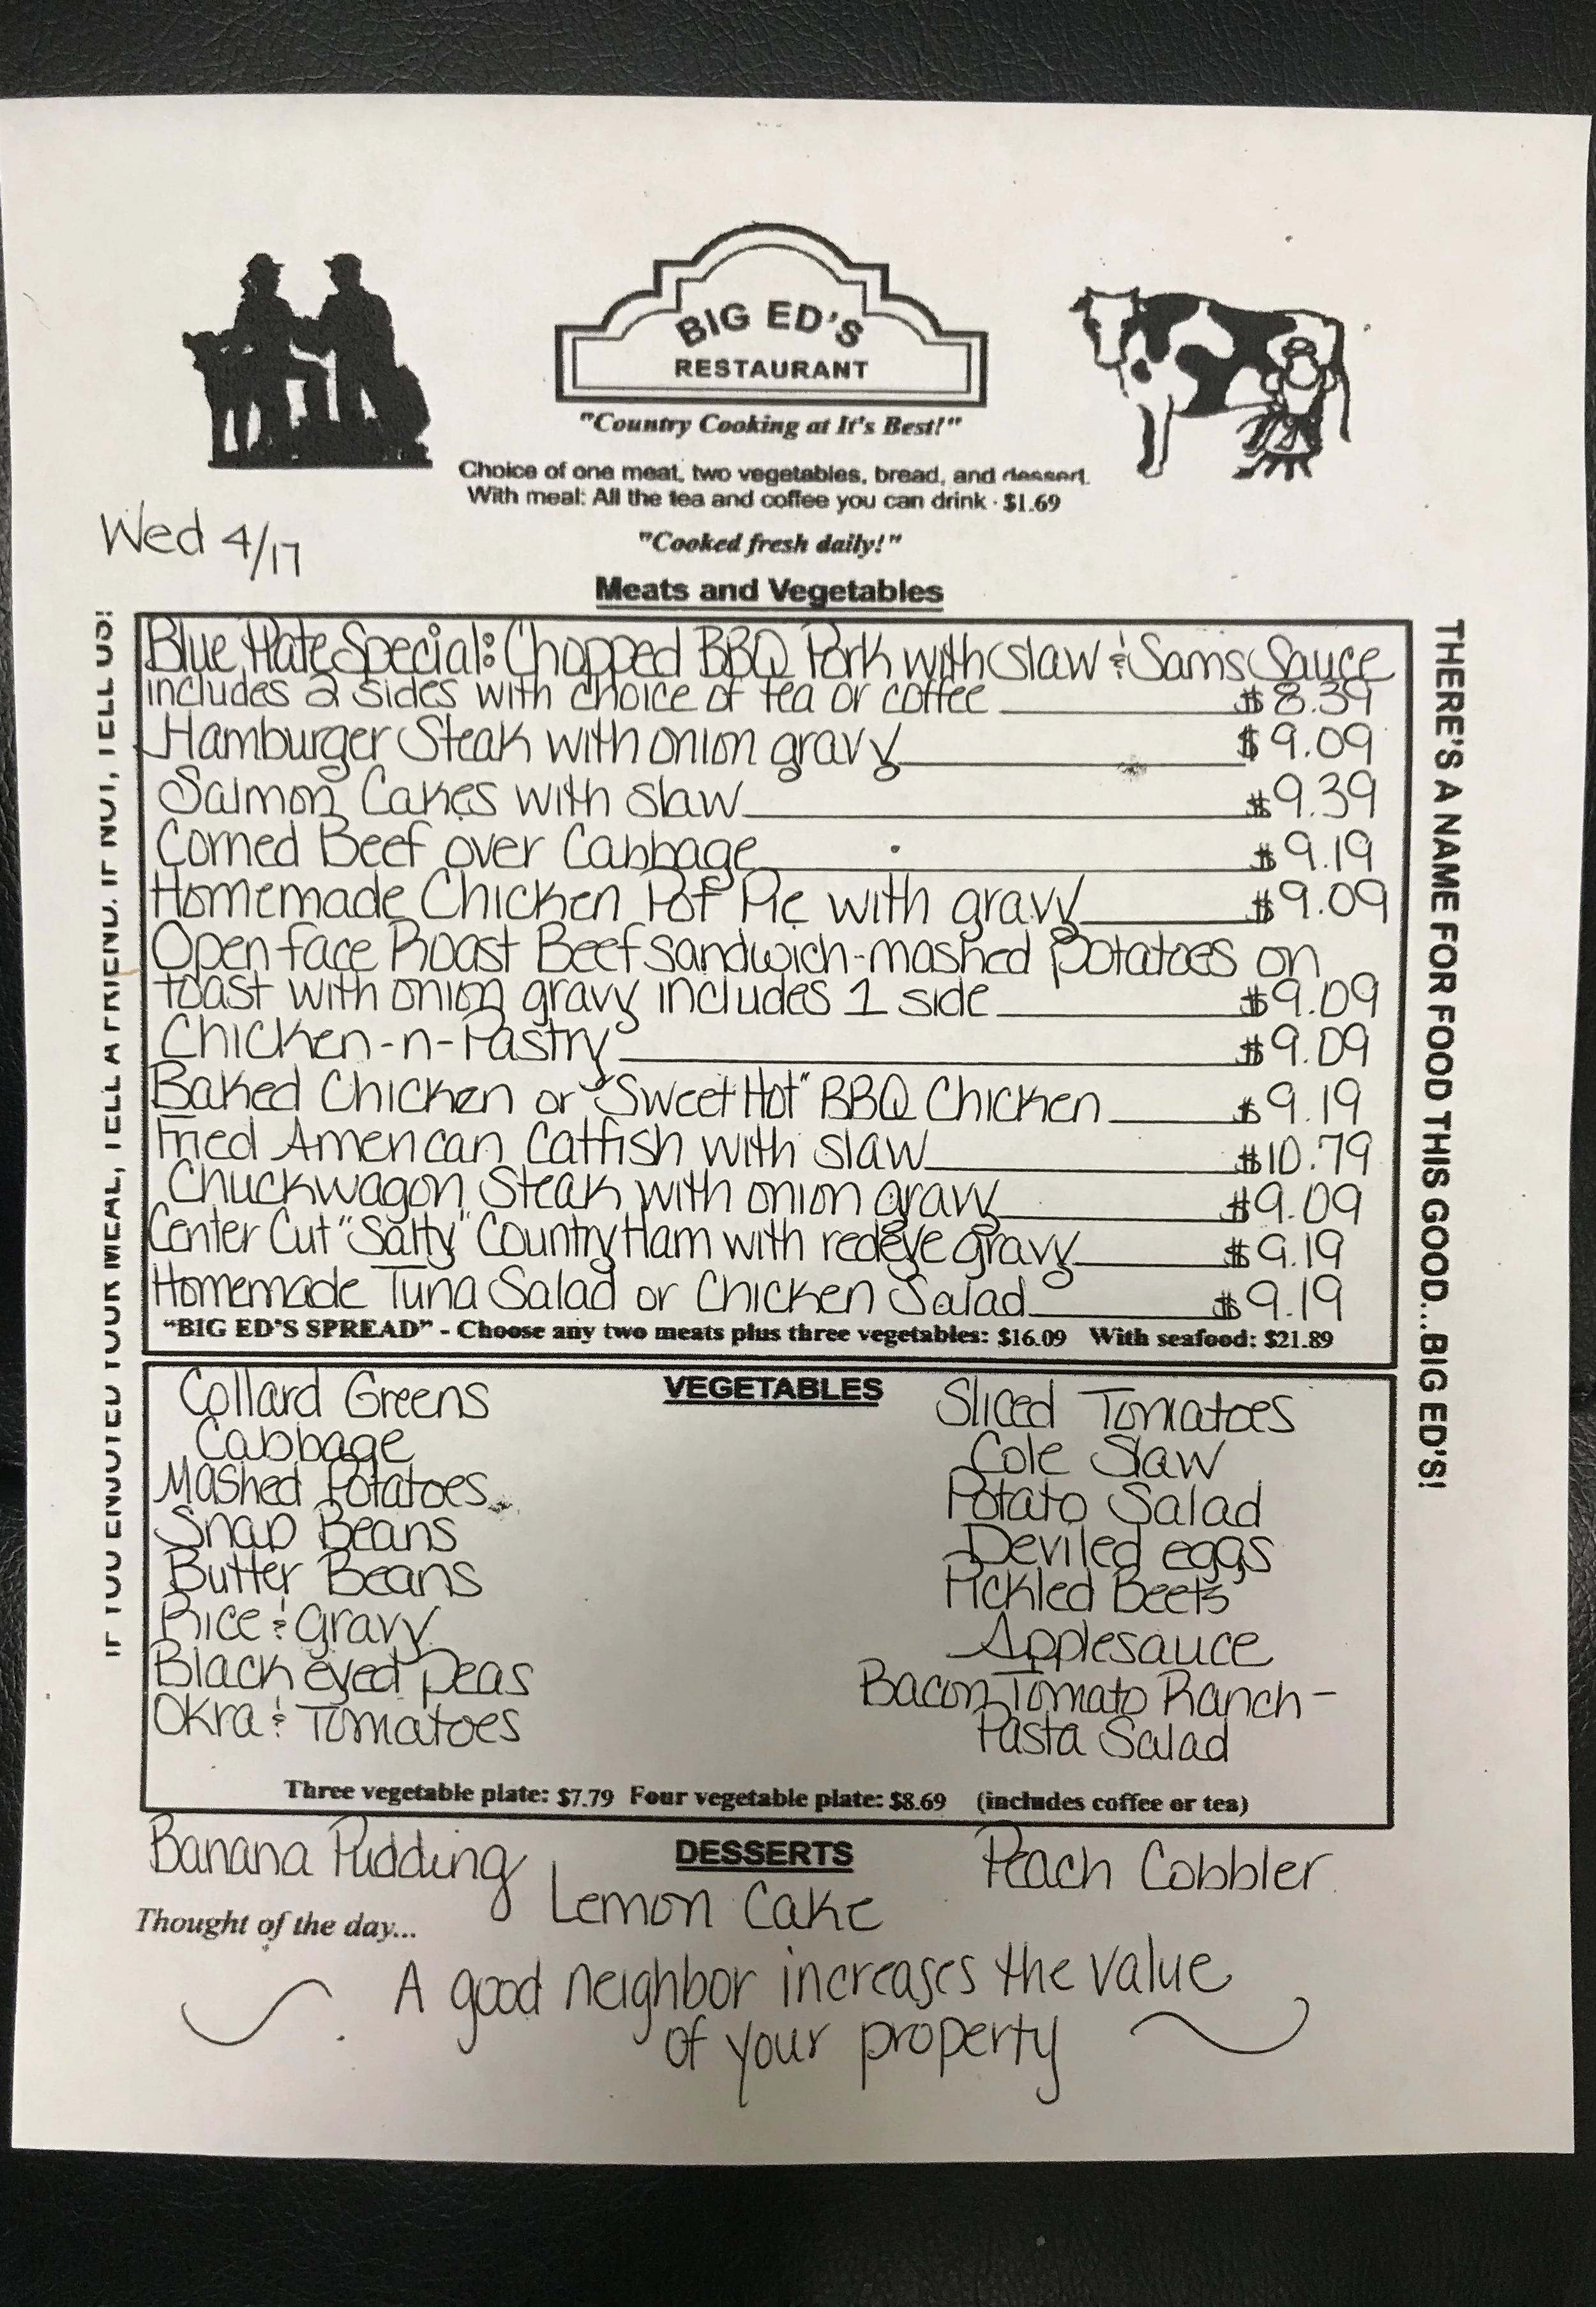 BIG ED'S
RESTAURANT
"Country Cooking at It's Best!"
Choice of one meat, two vegetables, bread, and dessert.
With meal: All the tea and coffee you can drink · $1.69
Wed 4/17
"Cooked fresh daily!"
Meats and Vegetables
Blue Plate Special: Chopped BBQ Pork with slaw & Sams Sauce
includes 2 sides with choice of tea or coffee $8.39
Hamburger Steak with onion gravy $9.09
Salmon Cakes with slaw $9.39
Corned Beef over Cabbage $9.19
Homemade Chicken Pot Pie with gravy $9.09
Open face Roast Beef sandwich-mashed potatoes on
toast with onion gravy includes 1 side $9.09
Chicken-n-Pastry $9.09
Baked Chicken or "Sweet Hot" BBQ Chicken $9.19
Fried American Catfish with slaw $10.79
Chuckwagon Steak with onion gravy $9.09
Center Cut "Salty" Country Ham with redeye gravy $9.19
Homemade Tuna Salad or Chicken Salad $9.19
"BIG ED'S SPREAD" - Choose any two meats plus three vegetables: $16.09 With seafood: $21.89
VEGETABLES
Collard Greens
Cabbage
Mashed Potatoes
Snap Beans
Butter Beans
Rice & gravy
Black eyed peas
Okra & Tomatoes
Sliced Tomatoes
Cole Slaw
Potato Salad
Deviled eggs
Pickled Beets
Applesauce
Bacon Tomato Ranch-
Pasta Salad
Three vegetable plate: $7.79 Four vegetable plate: $8.69 (includes coffee or tea)
DESSERTS
Banana Pudding
Lemon Cake
Peach Cobbler
Thought of the day...
A good neighbor increases the value
of your property
IF YOU ENJOYED YOUR MEAL, TELL A FRIEND. IF NOT, TELL US!
THERE'S A NAME FOR FOOD THIS GOOD...BIG ED'S!